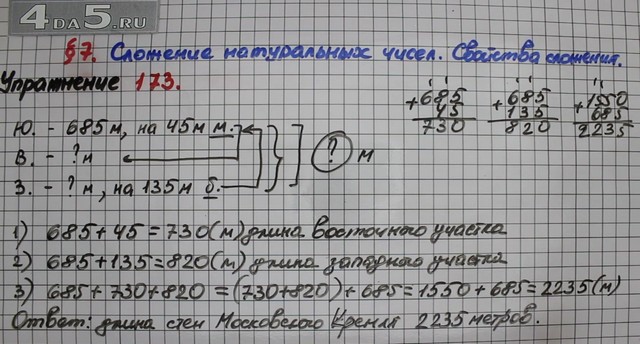 4DA5.RU
§7. Сложение натуральных чисел. Свойства сложения.
Упражнение 173.
Ю. - 685 м, на 45 м м.
В. - ? м
З. - ? м, на 135 м б.
? м
+685
45
730
+685
135
820
+1550
685
2235
1) 685 + 45 = 730 (м) длина восточного участка
2) 685 + 135 = 820 (м) длина западного участка
3) 685 + 730 + 820 = (730 + 820) + 685 = 1550 + 685 = 2235 (м)
Ответ: длина стен Московского Кремля 2235 метров.